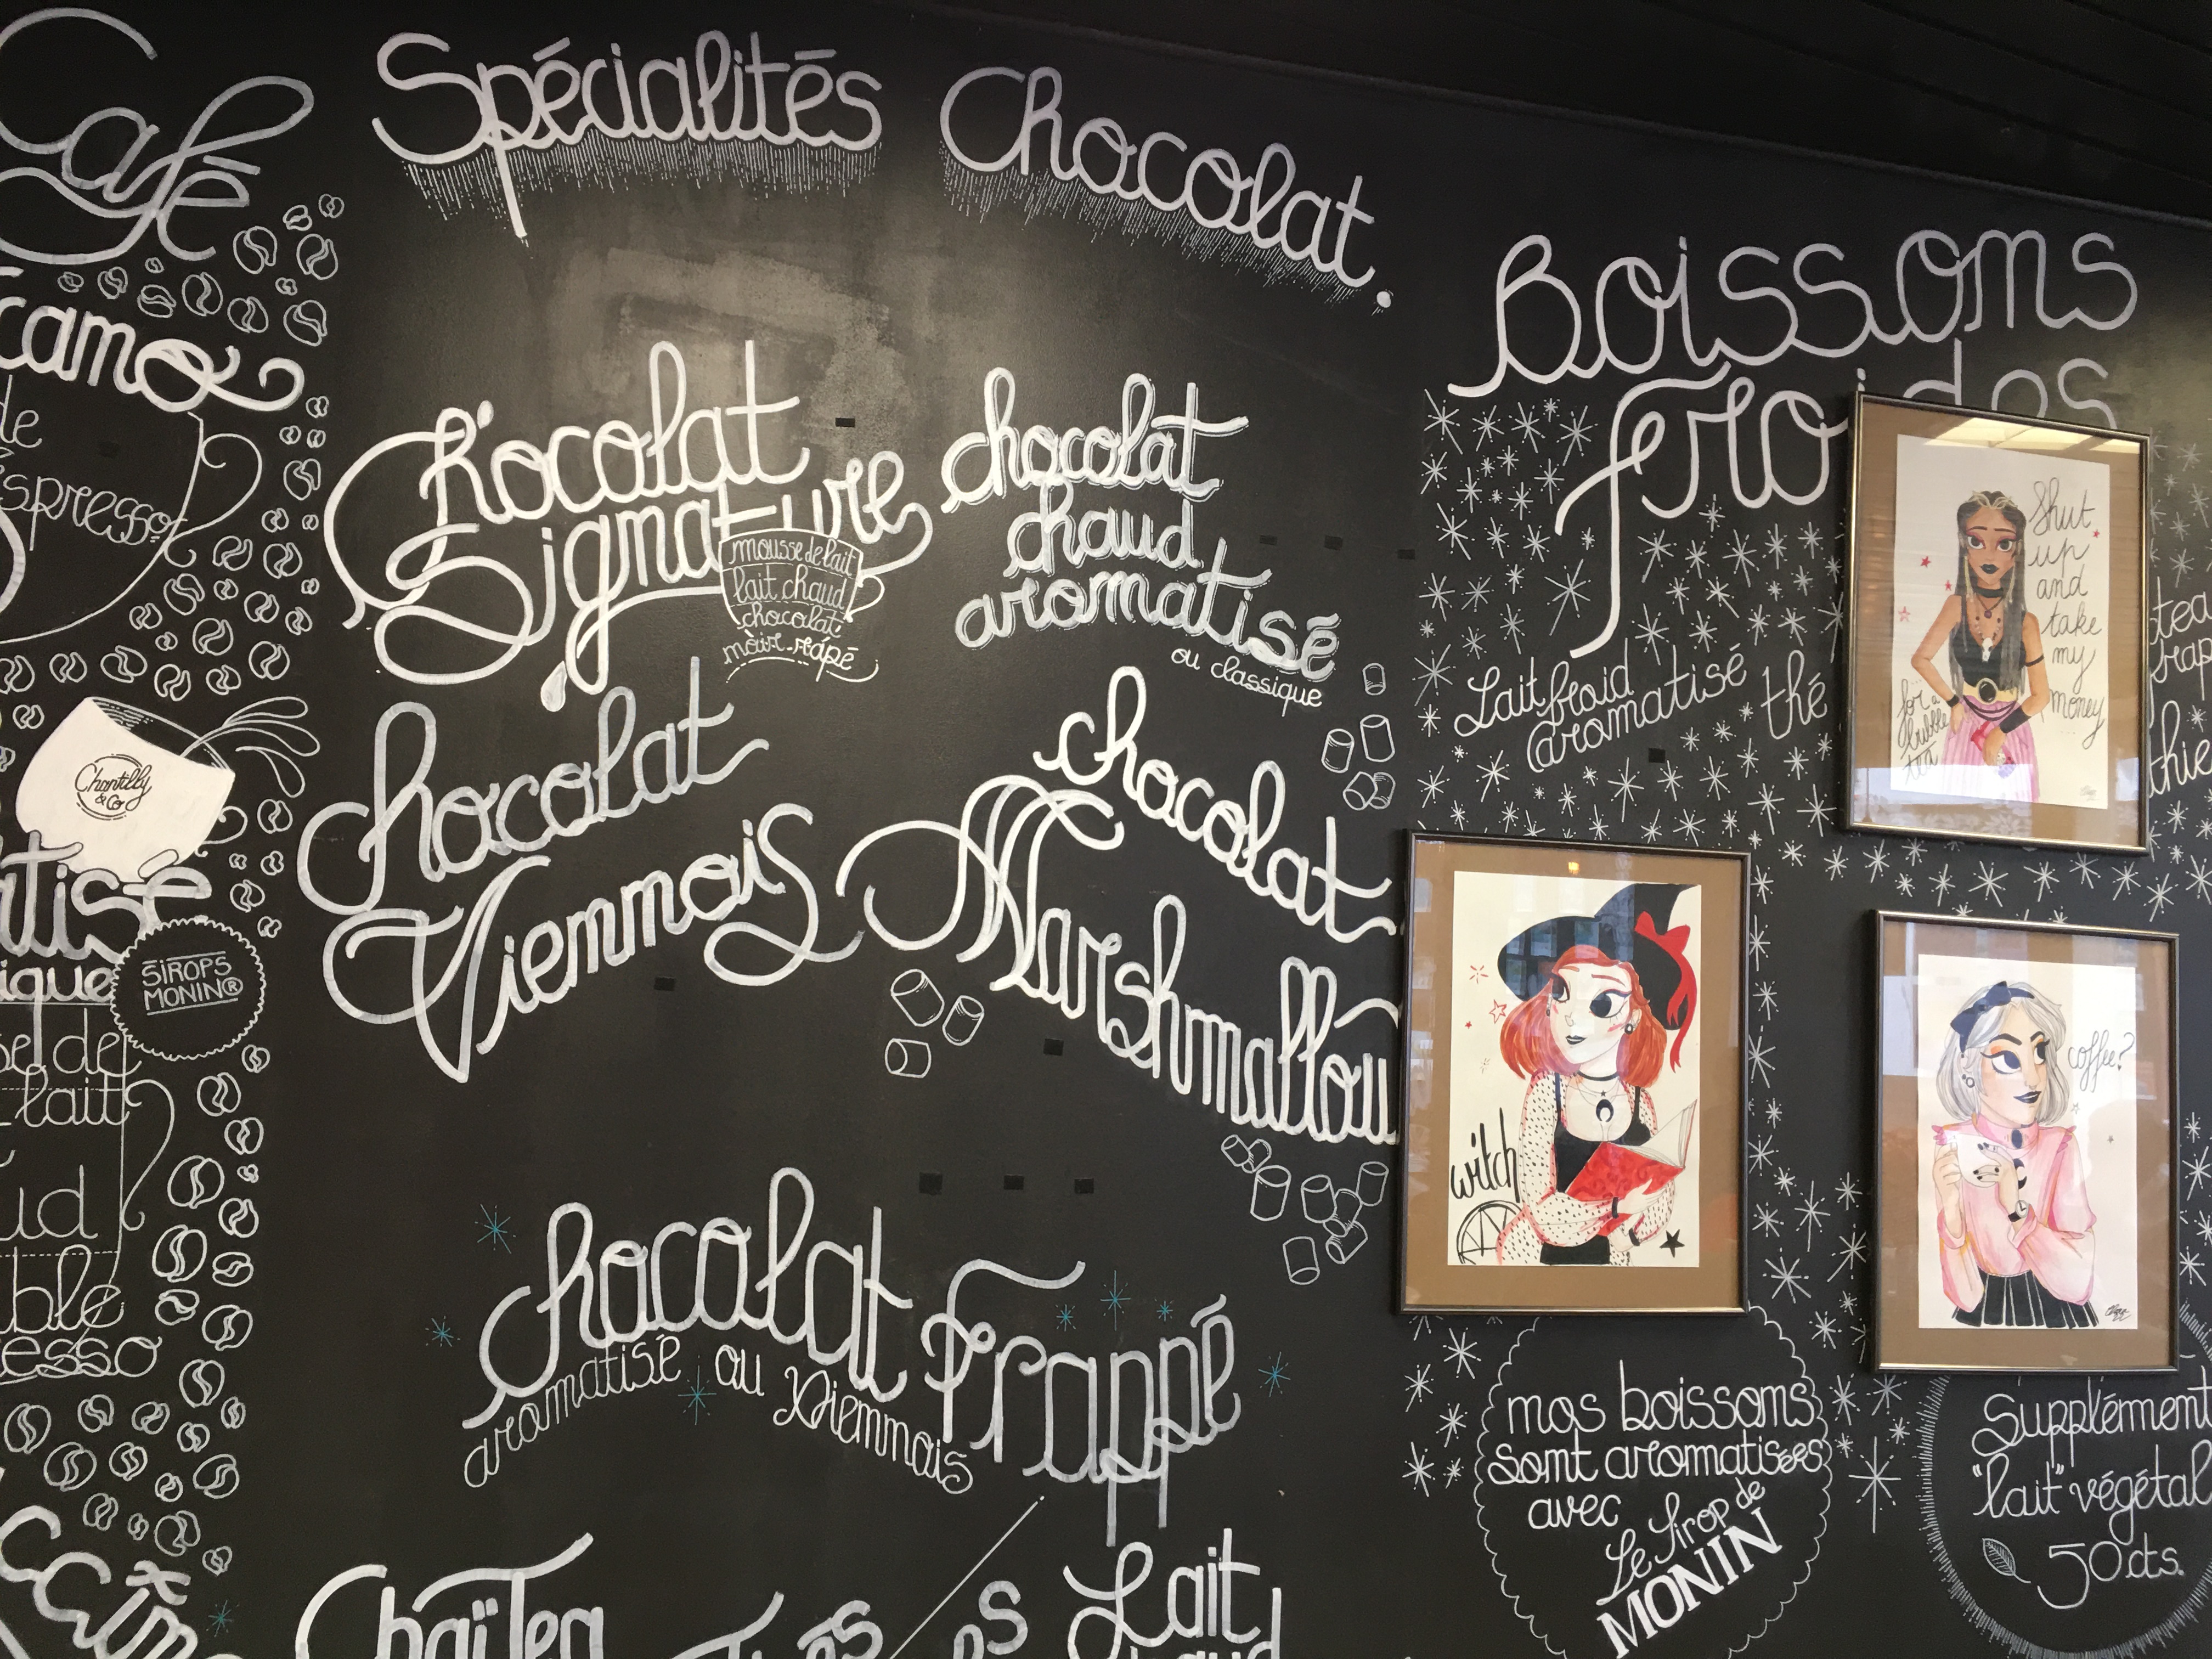 Café
de
Chantilly
& Co
SIROPS
MONIN®
de
lait
Spécialités Chocolat.
Chocolat
Signature
mousse de lait
lait chaud
chocolat
noir râpé
chocolat
chaud
aromatisé
ou classique
chocolat
Viennois
chocolat
Marshmallow
chocolat Frappé
aromatisé ou Viennois
Chaï Tea
Lait
Boissons
Lait froid
aromatisé
thé
Shut
up
and
take
my
money
for a
bubble
tea
witch
coffee?
nos boissons
sont aromatisées
avec
Le Sirop de
MONIN
Supplément
"lait" végétal
50cts.